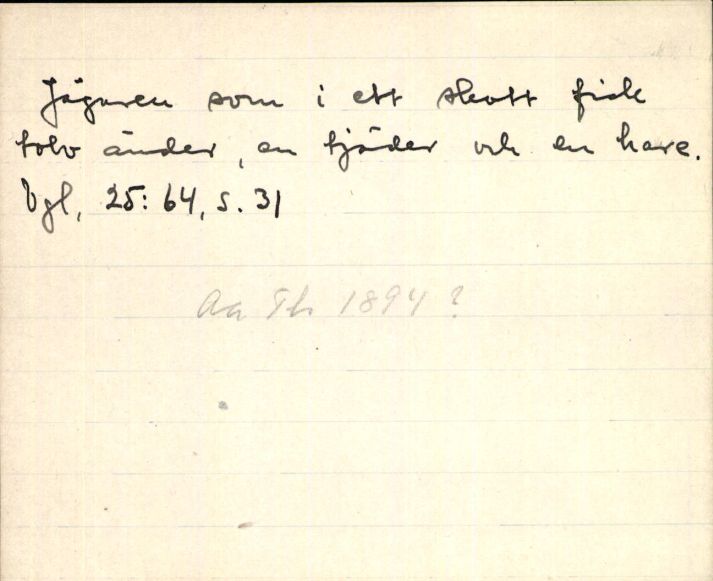 Jägaren som i ett skott fick
tolv änder, en tjäder och en hare.
Vgl, 25:64, s. 31
Aa Th 1894?